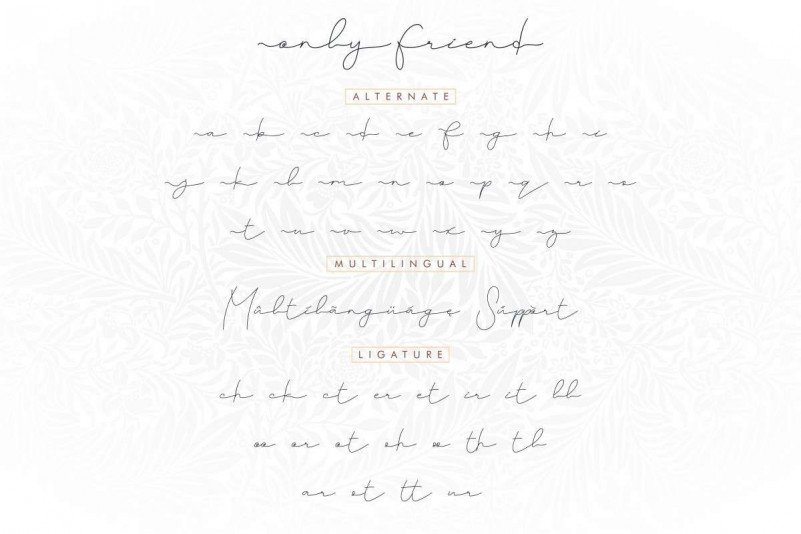 only friend
ALTERNATE
a b c d e f g h i
j k l m n o p q r s
t u v w x y z
MULTILINGUAL
Múltilãngüáge Súppòrt
LIGATURE
ch ck ct er et ir it ll
oo or ot oh th tl
ar ot tt ur